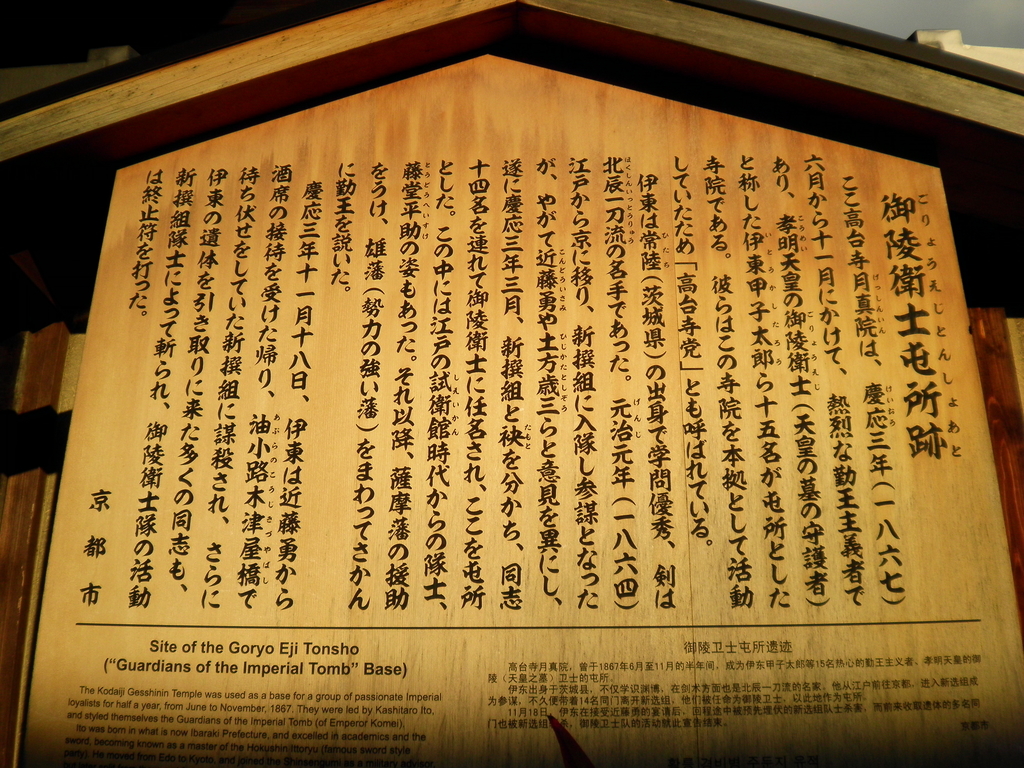 御陵衛士屯所跡
ごりょうえじとんしょあと
ここ高台寺月真院は、慶応三年(一八六七)
げっしんいん
けいおう
六月から十一月にかけて、熱烈な勤王主義者で
あり、孝明天皇の御陵衛士(天皇の墓の守護者)
こうめい
ごりょうえじ
と称した伊東甲子太郎ら十五名が屯所とした
いとうかしたろう
寺院である。彼らはこの寺院を本拠として活動
していたため「高台寺党」とも呼ばれている。
伊東は常陸(茨城県)の出身で学問優秀、剣は
ひたち
北辰一刀流の名手であった。元治元年(一八六四)
ほくしんいっとうりゅう
げんじ
江戸から京に移り、新撰組に入隊し参謀となった
が、やがて近藤勇や土方歳三らと意見を異にし、
こんどういさみ
ひじかたとしぞう
遂に慶応三年三月、新撰組と袂を分かち、同志
たもと
十四名を連れて御陵衛士に任名され、ここを屯所
とした。この中には江戸の試衛館時代からの隊士、
しえいかん
藤堂平助の姿もあった。それ以降、薩摩藩の援助
とうどうへいすけ
をうけ、雄藩(勢力の強い藩)をまわってさかん
に勤王を説いた。
慶応三年十一月十八日、伊東は近藤勇から
酒席の接待を受けた帰り、油小路木津屋橋で
あぶらのこうじきづやばし
待ち伏せをしていた新撰組に謀殺され、さらに
伊東の遺体を引き取りに来た多くの同志も、
新撰組隊士によって斬られ、御陵衛士隊の活動
は終止符を打った。
京都市
Site of the Goryo Eji Tonsho
("Guardians of the Imperial Tomb" Base)
The Kodaiji Gesshinin Temple was used as a base for a group of passionate Imperial
loyalists for half a year, from June to November, 1867. They were led by Kashitaro Ito,
and styled themselves the Guardians of the Imperial Tomb (of Emperor Komei).
Ito was born in what is now Ibaraki Prefecture, and excelled in academics and the
sword, becoming known as a master of the Hokushin Ittoryu (famous sword style
party). He moved from Edo to Kyoto, and joined the Shinsengumi as a military advisor,
御陵卫士屯所遗迹
高台寺月真院,曾于1867年6月至11月的半年间,成为伊东甲子太郎等15名热心的勤王主义者、孝明天皇的御
陵(天皇之墓)卫士的屯所。
伊东出身于茨城县,不仅学识渊博,在剑术方面也是北辰一刀流的名家。他从江户前往京都,进入新选组成
为参谋,不久便带着14名同门离开新选组,他们被任命为御陵卫士,以此地作为屯所。
11月18日,伊东在接受近藤勇的宴请后,回程途中被预先埋伏的新选组队士杀害,而前来收取遗体的多名同
门也被新选组 杀,御陵卫士队的活动就此宣告结束。
京都市